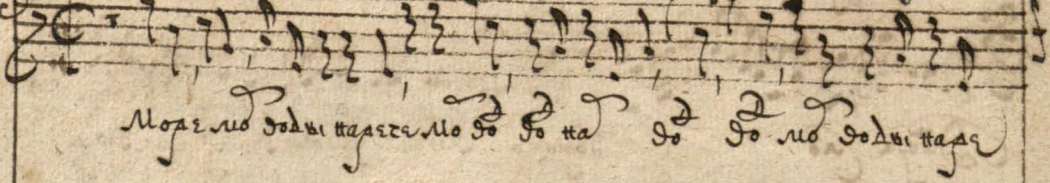 море мо воды нарече мо вод вод на вод вод мо воды наре